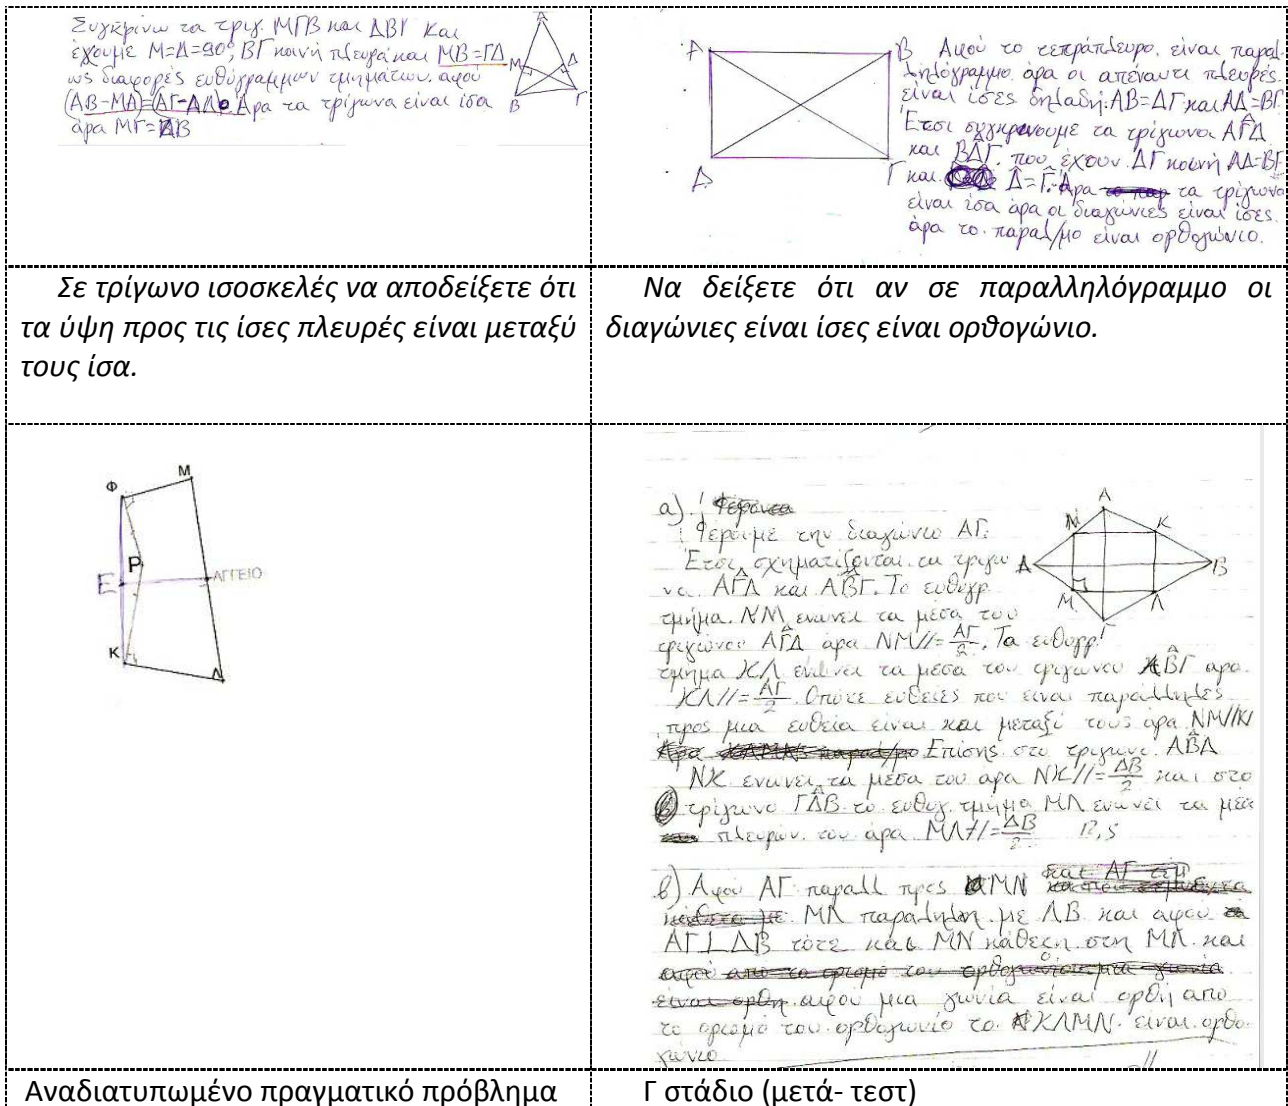 Συγκρίνω τα τριγ. ΜΓΒ και ΔΒΓ και
έχουμε Μ=Δ=90°, ΒΓ κοινή πλευρά και ΜΒ=ΓΔ
ως διαφορές ευθύγραμμων τμημάτων αφού
(ΑΒ-ΜΑ)=(ΑΓ-ΔΑ). Άρα τα τρίγωνα είναι ίσα
άρα ΜΓ=ΔΒ
Α
Μ
Δ
Β
Γ
Α
Β
Δ
Γ
Αφού το τετράπλευρο είναι παραλ
ληλόγραμμο άρα οι απέναντι πλευρές
είναι ίσες δηλαδή: ΑΒ=ΔΓ και ΑΔ=ΒΓ
Έτσι συγκρινουμε τα τρίγωνα ΑΓΔ
και ΒΔΓ που έχουν ΔΓ κοινή ΑΔ=ΒΓ
και Δ̂=Γ̂. Άρα τα τρίγωνα
είναι ίσα άρα οι διαγώνιες είναι ίσες.
άρα το παραλ/μο είναι ορθογώνιο.
Σε τρίγωνο ισοσκελές να αποδείξετε ότι
τα ύψη προς τις ίσες πλευρές είναι μεταξύ
τους ίσα.
Να δείξετε ότι αν σε παραλληλόγραμμο οι
διαγώνιες είναι ίσες είναι ορθογώνιο.
Φ
Μ
Ρ
Ε
ΑΓΓΕΙΟ
Κ
Λ
α)
Φέρουμε την διαγώνιο ΑΓ.
Έτσι σχηματίζονται τα τριγω
να ΑΓ̂Δ και ΑΒ̂Γ. Το ευθυγρ
τμήμα ΝΜ ενώνει τα μέσα του
τριγώνου ΑΓ̂Δ άρα ΝΜ//=ΑΓ/2. Το ευθυγρ
τμήμα ΚΛ ενώνει τα μέσα του τριγώνου ΑΒ̂Γ αρα
ΚΛ//=ΑΓ/2. Οπότε ευθείες που είναι παράλληλες
προς μια ευθεία είναι και μεταξύ τους άρα ΝΜ//ΚΛ
Επίσης στο τρίγωνο ΑΒ̂Δ
ΝΚ ενώνει τα μέσα του αρα ΝΚ//=ΔΒ/2 και στο
τρίγωνο ΓΔ̂Β το ευθυγ. τμήμα ΜΛ ενώνει τα μέσα
πλευρών του άρα ΜΛ//=ΔΒ/2 12,5
β) Αφού ΑΓ παραλλ προς ΜΝ
ΜΛ παραληλη με ΔΒ και αφού
ΑΓ⊥ΔΒ τότε και ΜΝ κάθετη στη ΜΛ και
αφού μια γωνία είναι ορθή απο
το ορισμό του ορθογωνίο το ΚΛΜΝ είναι ορθο
γωνιο
Α
Ν
Κ
Δ
Β
Μ
Λ
Γ
Αναδιατυπωμένο πραγματικό πρόβλημα
Γ στάδιο (μετά- τεστ)